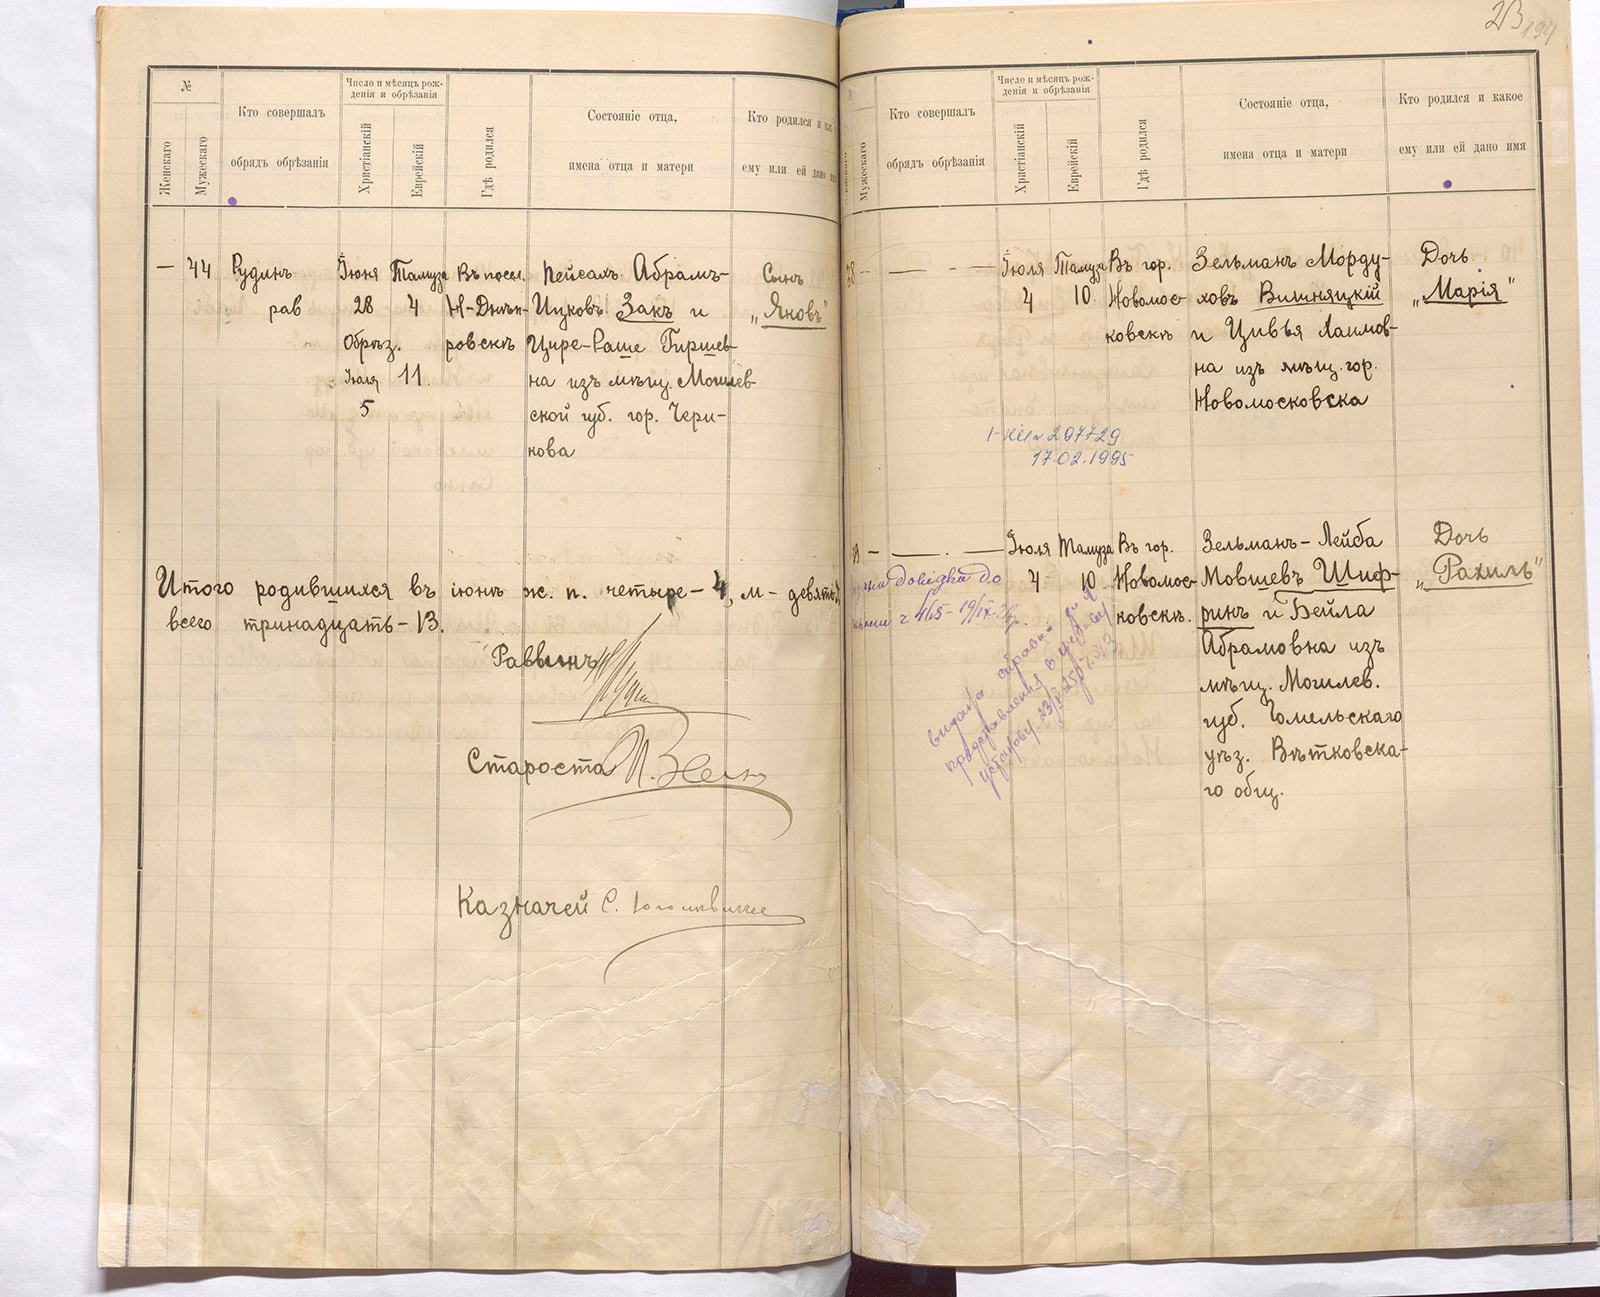 №
Женскаго
Мужескаго
Кто совершалъ
обрядъ обрѣзанія
Число и мѣсяцъ рож-
денія и обрѣзанія
Христіанскій
Еврейскій
Гдѣ родился
Состояніе отца,
имена отца и матери
Кто родился и как
ему или ей дано
— 44
Рудинъ
рав
Іюня
28
Обрѣз.
Іюля
5
Тамуза
4
11
Въ посел.
Н-Днѣп-
ровскѣ
Пейсахъ Абрамъ-
Ицковъ Закъ и
Цире-Раше Гиршев-
на изъ мѣщ. Могилев-
ской губ. гор. Чери-
кова
Сынъ
„Яковъ"
Итого родившихся въ іюнѣ ж. п. четыре - 4, м - девять
всего тринадцать - 13.
Раввинъ
Староста
Казначей С.
23
194
Мужескаго
Кто совершалъ
обрядъ обрѣзанія
Число и мѣсяцъ рож-
денія и обрѣзанія
Христіанскій
Еврейскій
Гдѣ родился
Состояніе отца,
имена отца и матери
Кто родился и какое
ему или ей дано имя
38 —
Іюля
4
Тамуза
10
Въ гор.
Новомос-
ковскѣ
Зельманъ Морду-
ховъ Вишняцкій
и Цивья Хаимов-
на изъ мѣщ. гор.
Новомосковска
Дочь
„Марія"
207729
17.02.1995
39 —
Іюля
4
Тамуза
10
Въ гор.
Новомос-
ковскѣ.
Зельманъ-Лейба
Мовшевъ Шиф-
ринъ и Бейла
Абрамовна изъ
мѣщ. Могилев.
губ. Гомельскаго
уѣз. Вѣтковска-
го общ.
Дочь
„Рахиль"
довідки до
ч 465-19/IX-